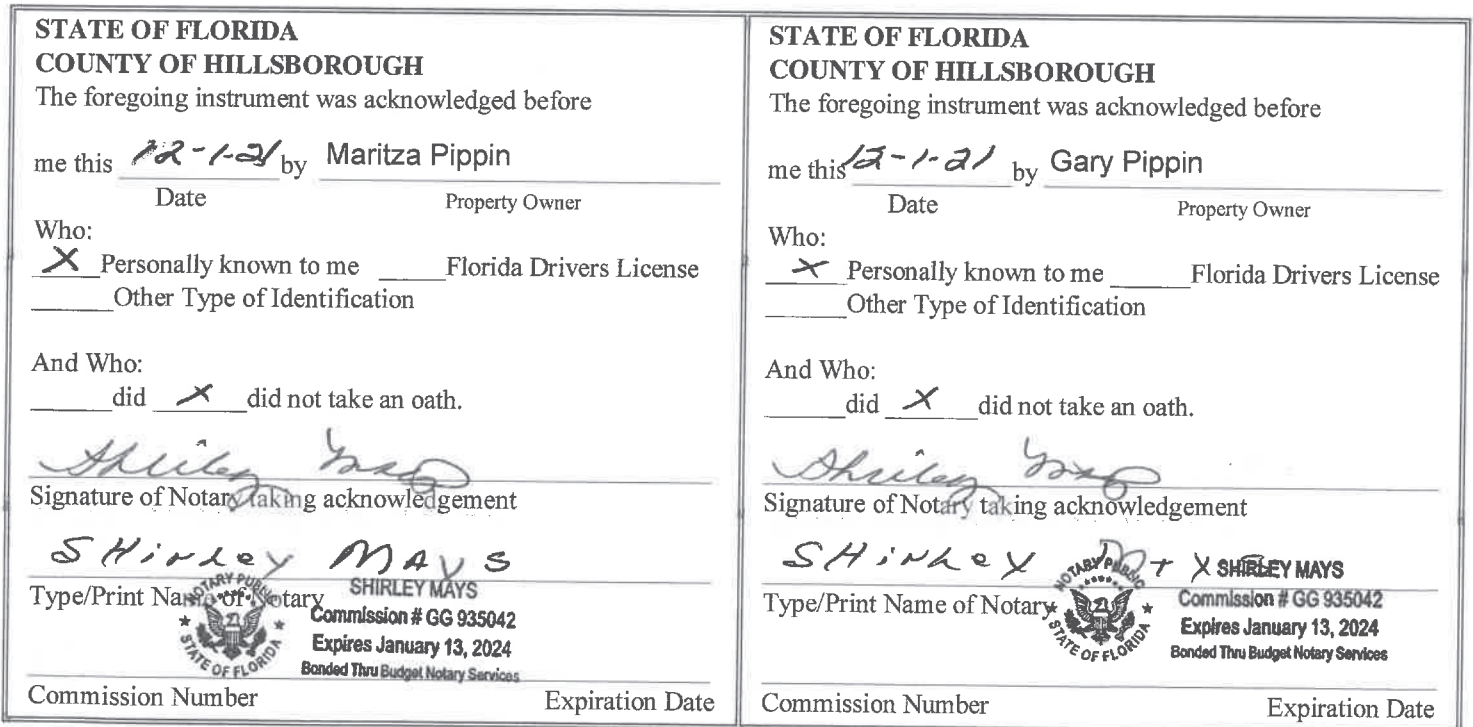 STATE OF FLORIDA
COUNTY OF HILLSBOROUGH
The foregoing instrument was acknowledged before
me this 12-1-21 by Maritza Pippin
Date Property Owner
Who:
X Personally known to me ______ Florida Drivers License
______ Other Type of Identification
And Who:
______ did X did not take an oath.
Shirley Mays
Signature of Notary taking acknowledgement
SHirLey MAYS
Type/Print Name of Notary
NOTARY PUBLIC
STATE OF FLORIDA
SHIRLEY MAYS
Commission # GG 935042
Expires January 13, 2024
Bonded Thru Budget Notary Services
Commission Number Expiration Date
STATE OF FLORIDA
COUNTY OF HILLSBOROUGH
The foregoing instrument was acknowledged before
me this 12-1-21 by Gary Pippin
Date Property Owner
Who:
X Personally known to me ______ Florida Drivers License
______ Other Type of Identification
And Who:
______ did X did not take an oath.
Shirley Mays
Signature of Notary taking acknowledgement
SHirLey
Type/Print Name of Notary
NOTARY PUBLIC
STATE OF FLORIDA
SHIRLEY MAYS
Commission # GG 935042
Expires January 13, 2024
Bonded Thru Budget Notary Services
Commission Number Expiration Date